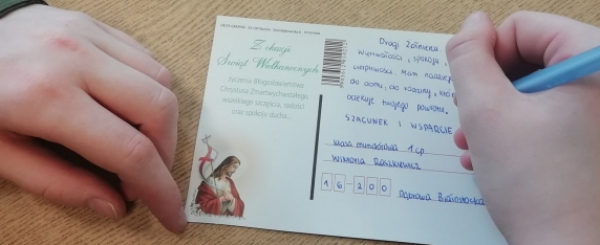 Z okazji
Świąt Wielkanocnych
życzenia Błogosławieństwa
Chrystusa Zmartwychwstałego,
wszelkiego szczęścia, radości
oraz spokoju ducha...
Drogi Żołnierzu
wytrwałości, spokoju,
cierpliwości. Mam nadzieję
do domu, do rodziny, któr
oczekuje twojego powrotu.
SZACUNEK I WSPARCIE
klasa mundurowa 1 cp
Wiktoria
16-200 Dąbrowa Białostocka